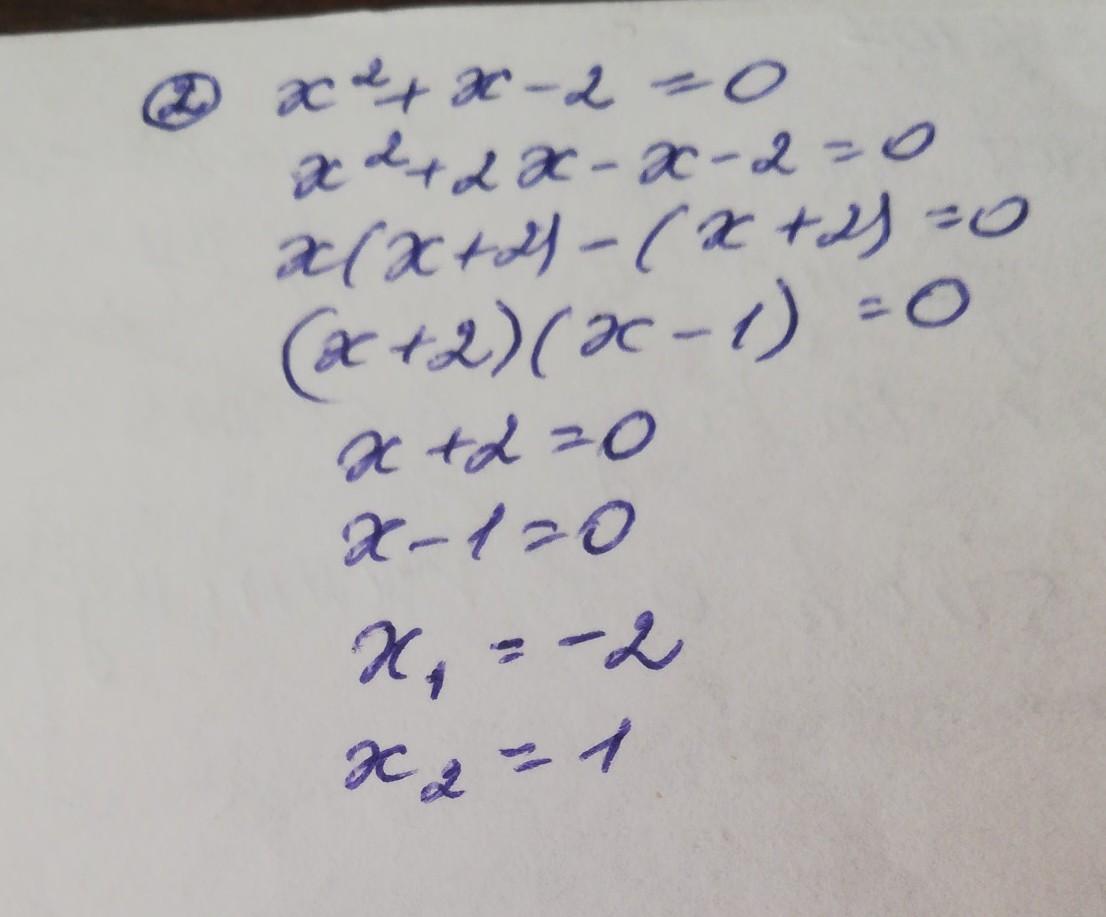 ② x² + x - 2 = 0
x² + 2x - x - 2 = 0
x(x+2) - (x+2) = 0
(x+2)(x-1) = 0
x + 2 = 0
x - 1 = 0
x₁ = -2
x₂ = 1